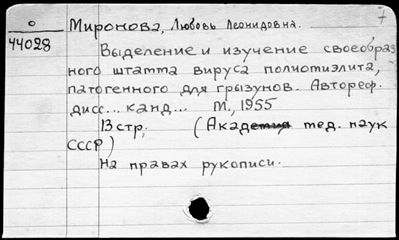 7
о
44028
Миронова, Любовь Леонидовна.
Выделение и изучение своеобраз
ного штамма вируса полиомиэлита,
патогенного для грызунов. Автореф.
дисс... канд... М., 1955
13 стр. (Академия мед. наук
СССР)
На правах рукописи.